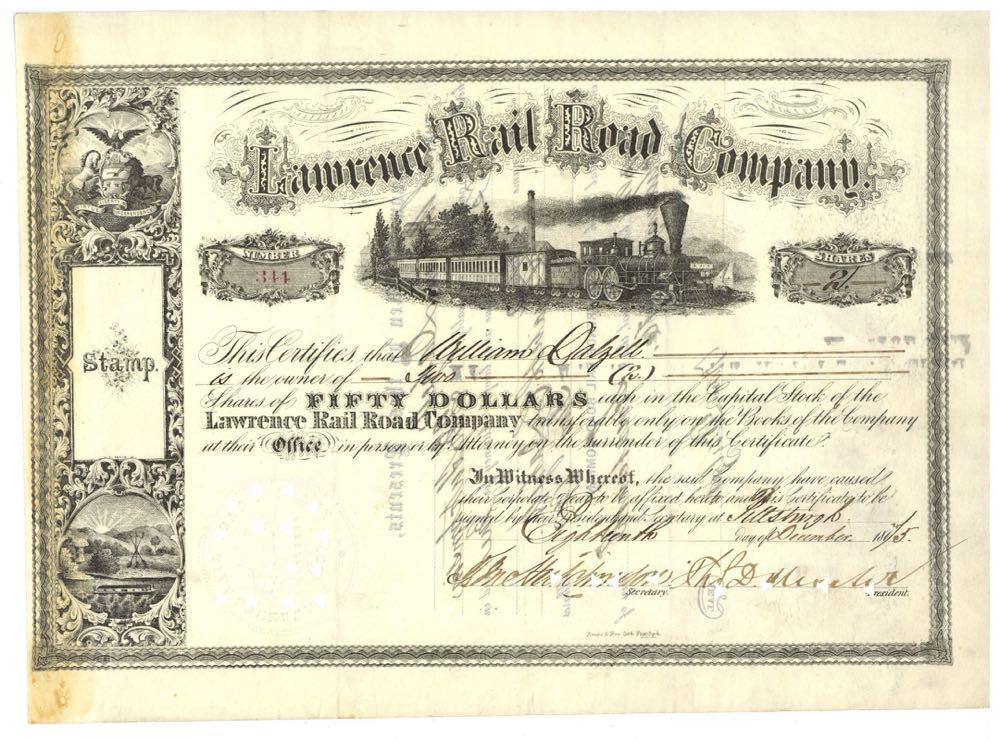 Lawrence Rail Road Company.
NUMBER
344
SHARES
2
Stamp.
This Certifies, that William Dalzell
is the owner of Two (2.)
Shares of FIFTY DOLLARS each in the Capital Stock of the
Lawrence Rail Road Company transferable only on the Books of the Company
at their Office in person or by Attorney on the surrender of this Certificate.
In Witness Whereof, the said Company have caused
their Corporate Seal to be affixed hereto and this Certificate to be
signed by their President and Secretary at Pittsburgh
Eighteenth day of December 1875.
Secretary.
President.